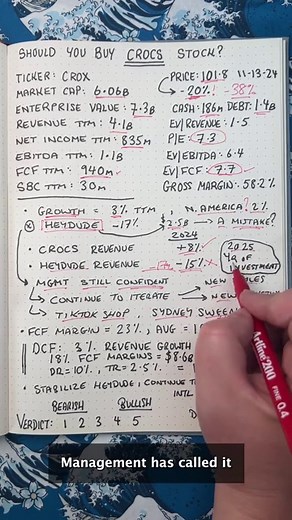 SHOULD YOU BUY CROCS STOCK?
TICKER: CROX
PRICE: 101.8 11-13-24
MARKET CAP: 6.06B
-20%! -38%
ENTERPRISE VALUE: 7.3B
CASH: 186M DEBT: 1.4B
REVENUE TTM: 4.1B
EV/REVENUE: 1.5
NET INCOME TTM: 835M
P/E: 7.3
EBITDA TTM: 1.1B
EV/EBITDA: 6.4
FCF TTM: 940M
EV/FCF: 7.7
SBC TTM: 30M
GROSS MARGIN: 58.2%
• GROWTH = 3% TTM
N. AMERICA: 2%
HEYDUDE -17%
$2.5B → A MISTAKE?
2024
• CROCS REVENUE
+8%
• HEYDUDE REVENUE
-15%
2025
YR OF
INVESTMENT
• MGMT STILL CONFIDENT
NEW
→ CONTINUE TO ITERATE
→ NEW
→ TIKTOK SHOP
SYDNEY SWEEN
• FCF MARGIN = 23%, AVG = 1
DCF: 3% REVENUE GROWTH
18% FCF MARGINS = $8.6B
DR = 10%, TR = 2.5% =
• STABILIZE HEYDUDE, CONTINUE
INTL
BEARISH BULLISH
VERDICT: 1 2 3 4 5
D
Artline 200
FINE 0.4
Management has called it